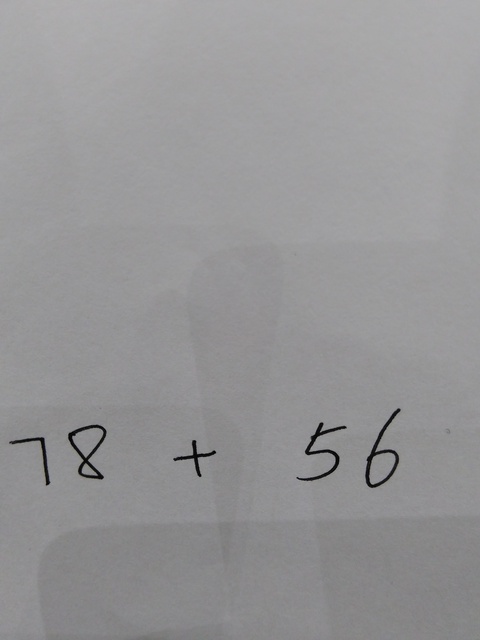 78 + 56